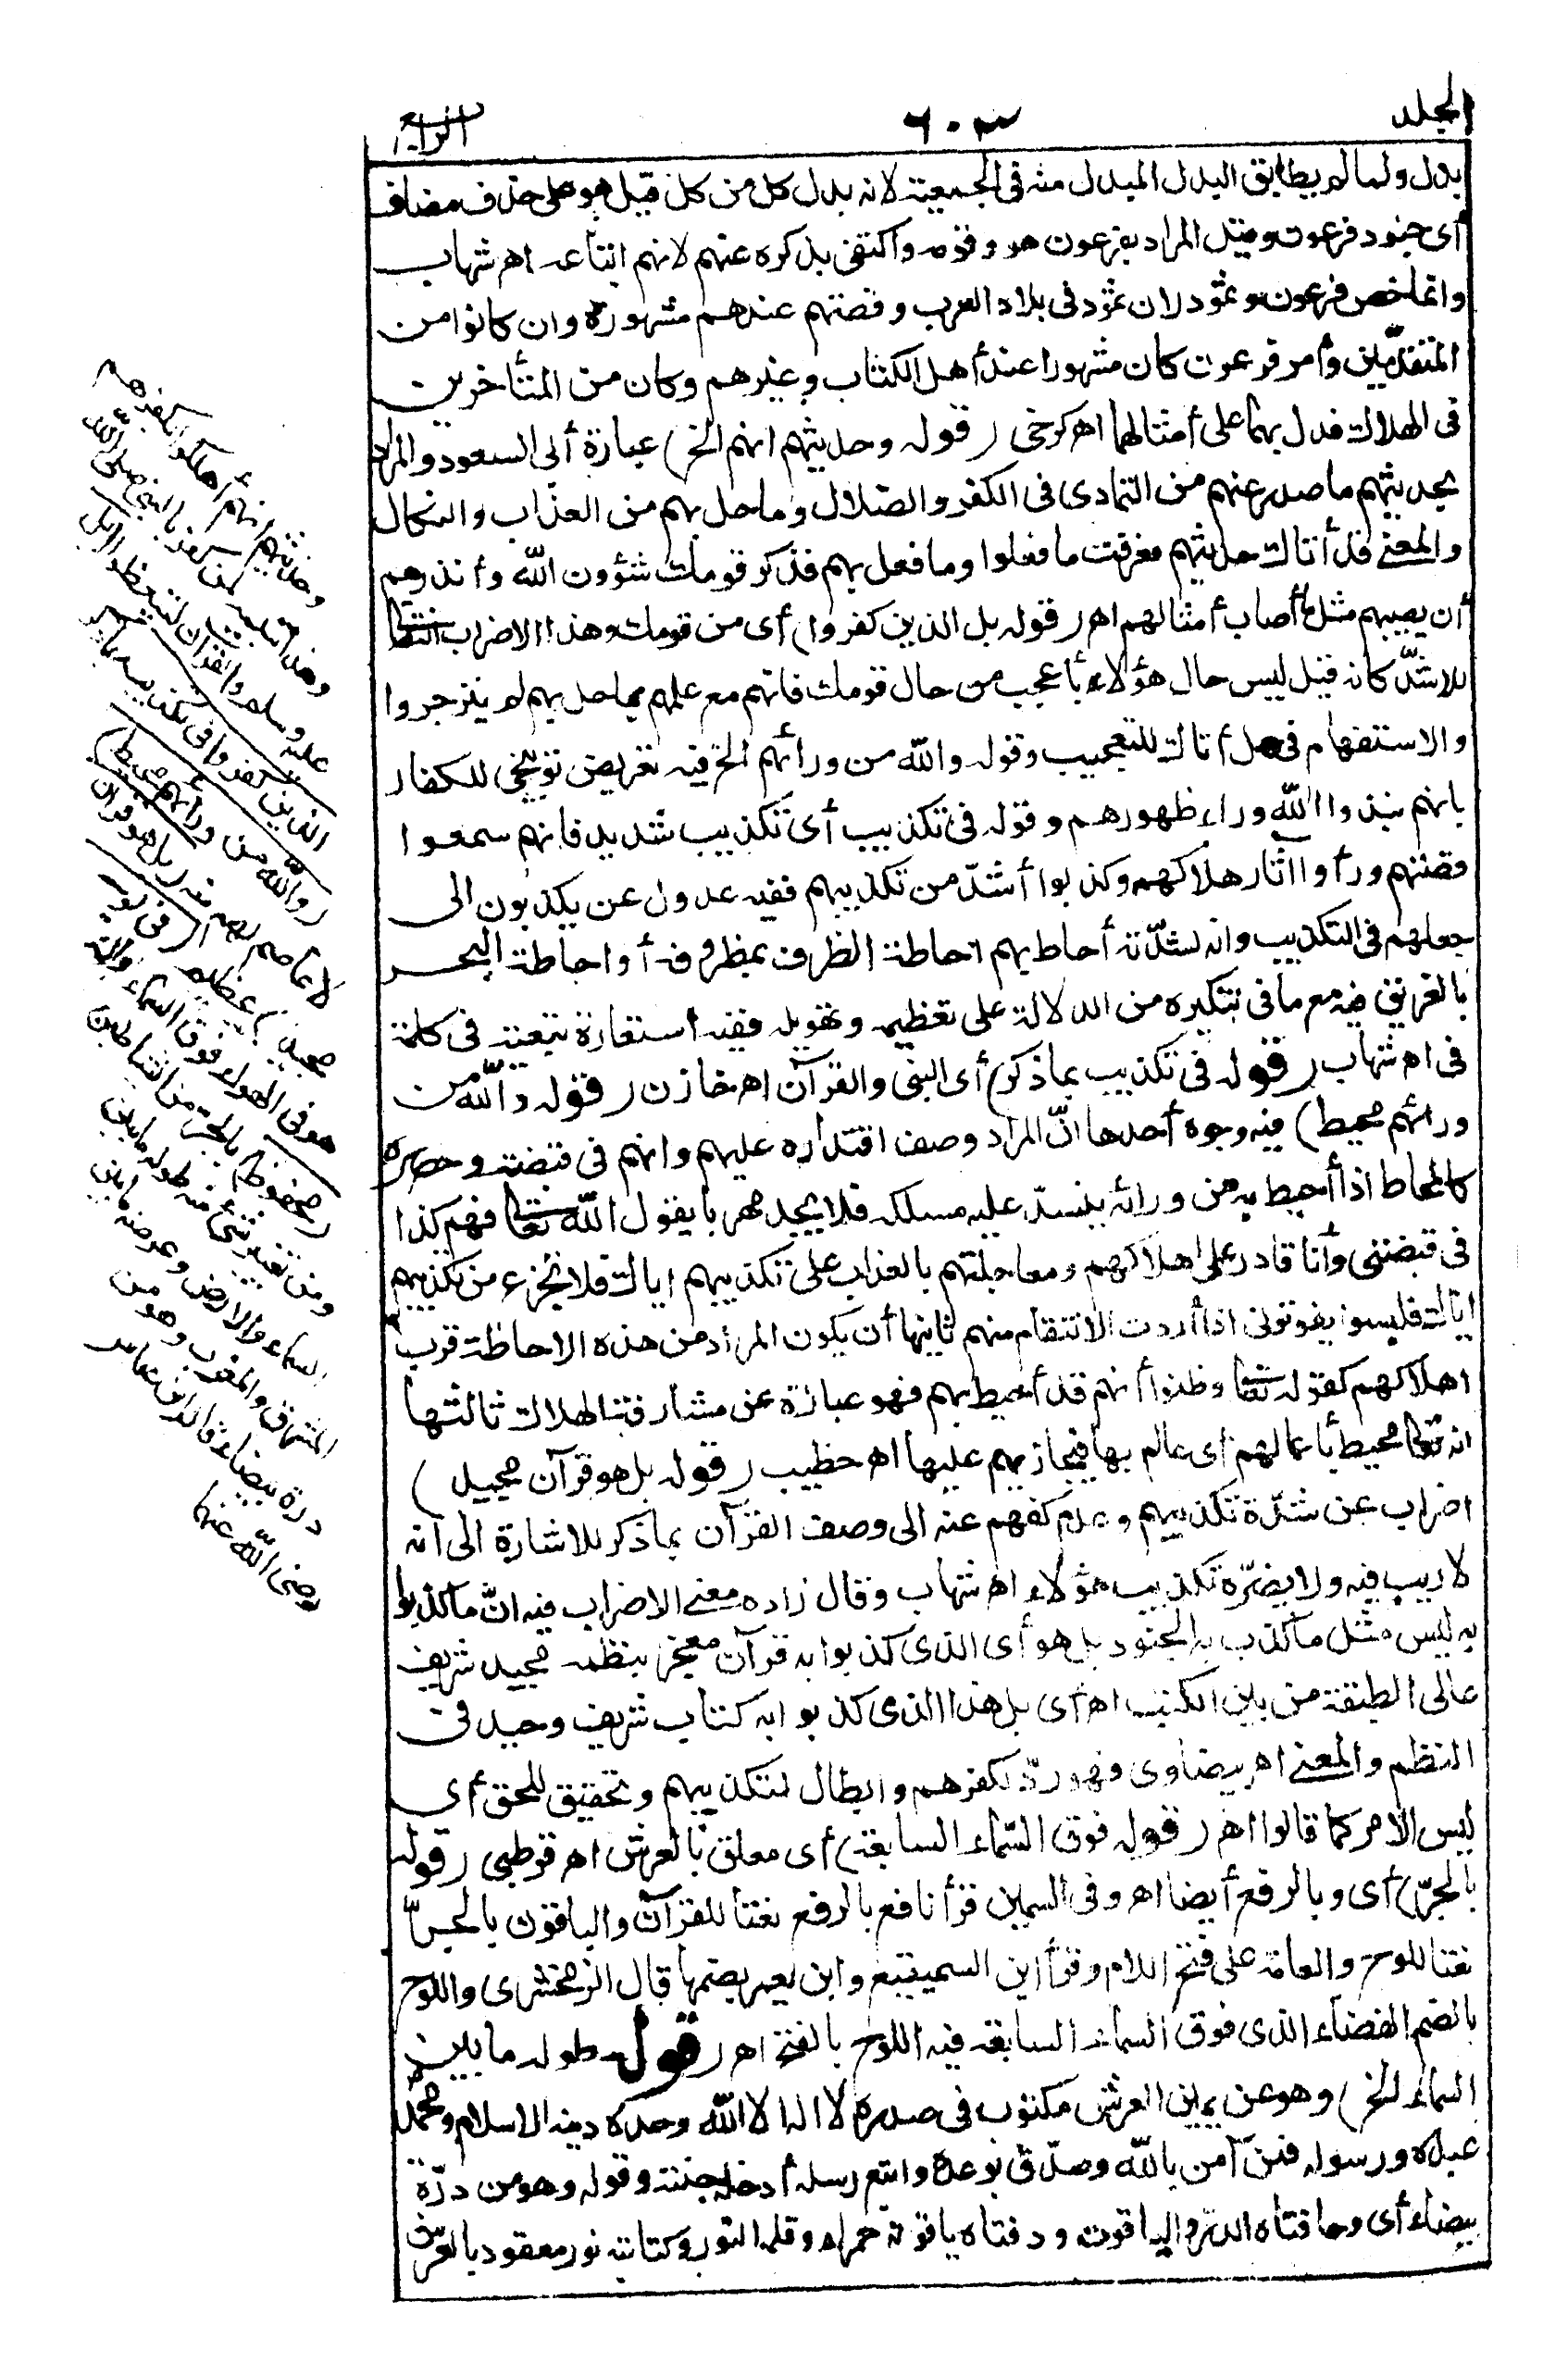 المجلد
٦٠٣
الرابع
بدل ولما لم يطابق البدل المبدل منه فى الجمعية لانه بدل كل من كل قيل هو على حذف مضاف
أى جنود فرعون وقيل المراد بفرعون هو وقومه واكتفى بذكره عنهم لانهم اتباعه اهـ شهاب
وانما خص فرعون وثمود لان ثمود فى بلاد العرب وقصتهم عندهم مشهورة وان كانوا من
المتقدمين وأمر فرعون كان مشهورا عند أهل الكتاب وغيرهم وكان من المتأخرين
فى الهلاك فدل بهما على أمثالهما اهـ كرخى (قوله وحديثهم انهم الخ) عبارة أبى السعود والمراد
بحديثهم ما صدر عنهم من التمادى فى الكفر والضلال وما حل بهم من العذاب والنكال
والمعنى قد أتاك حديثهم فعرفت ما فعلوا وما فعل بهم فذكر قومك شؤون الله وأنذرهم
أن يصيبهم مثل ما أصاب أمثالهم اهـ (قوله بل الذين كفروا) أى من قومك وهذا الاضراب انتقالى
للاشدّ كانه قيل ليس حال هؤلاء بأعجب من حال قومك فانهم مع علمهم بما حل بهم لم ينزجروا
والاستفهام فى هل أتاك للتعجيب وقوله والله من ورائهم الخ فيه تعريض توبيخى للكفار
بانهم نبذوا الله وراء ظهورهم وقوله فى تكذيب أى تكذيب شديد فانهم سمعوا
قصتهم ورأوا آثار هلاكهم وكذبوا أشدّ من تكذيبهم ففيه عدول عن يكذبون الى
جعلهم فى التكذيب وانه لشدّته أحاط بهم احاطة الظرف بمظروفه أو احاطة البحر
بالغريق فيه مع ما فى تنكيره من الدلالة على تعظيمه وتهويله ففيه استعارة تبعية فى كلمة
فى اهـ شهاب (قوله فى تكذيب بما ذكر) أى النبى والقرآن اهـ خازن (قوله والله من
ورائهم محيط) فيه وجوه أحدها انّ المراد وصف اقتداره عليهم وانهم فى قبضته وحصره
كالمحاط اذا أحيط به من ورائه ينسدّ عليه مسلكه فلا يجد مهربا يقول الله تعالى فهم كذا
فى قبضتى وأنا قادر على اهلاكهم ومعاجلتهم بالعذاب على تكذيبهم اياك فلا تجزع من تكذيبهم
اياك فليسوا يفوتونى اذا أردت الانتقام منهم ثانيها أن يكون المراد من هذه الاحاطة قرب
اهلاكهم كقوله تعالى وظنوا أنهم قد أحيط بهم فهو عبارة عن مشارفة الهلاك ثالثها
انه تعالى محيط بأعمالهم أى عالم بها فيجازيهم عليها اهـ خطيب (قوله بل هو قرآن مجيد)
اضراب عن شدّة تكذيبهم وعدم كفهم عنه الى وصف القرآن بما ذكر للاشارة الى انه
لا ريب فيه ولا يضرّه تكذيب هؤلاء اهـ شهاب وقال زاده معنى الاضراب فيه انّ ما كذبوا
به ليس مثل ما كذب به الجنود بل هو أى الذى كذبوا به قرآن معجز بنظمه مجيد شريف
عالى الطبقة من بين الكتب اهـ أى بل هذا الذى كذبوا به كتاب شريف وحيد فى
النظم والمعنى اهـ بيضاوى فهو ردّ لكفرهم وابطال لتكذيبهم وتحقيق للحق أى
ليس الامر كما قالوا اهـ (قوله فوق السّماء السابعة) أى معلق بالعرش اهـ قرطبى (قوله
بالجرّ) أى وبالرفع أيضا اهـ وفى السمين قرأ نافع بالرفع نعتا للقرآن والباقون بالجرّ
نعتا للوح والعامة على فتح اللام وقرأ ابن السميفع وابن يعمر بضمها قال الزمخشرى واللوح
بالضم الفضاء الذى فوق السماء السابعة فيه اللوح بالفتح اهـ (قوله طوله ما بين
السماء الخ) وهو عن يمين العرش مكتوب فى صدره لا اله الا الله وحده دينه الاسلام ومحمد
عبده ورسوله فمن آمن بالله وصدّق بوعده واتبع رسله أدخله جنته وقوله وهو من درّة
بيضاء أى وحافتاه الدرّ والياقوت ودفتاه ياقوتة حمراء وقلمه النور وكتابته نور معقود بالعرش
وحديثهم انهم أهلكوا بكفرهم
وهذا تنبيه لمن كفر بالنبى صلى الله
عليه وسلم والقرآن ليتعظوا (بل
الذين كفروا فى تكذيب) بما ذكر
(والله من ورائهم محيط)
لا عاصم لهم منه (بل هو قرآن
مجيد) عظيم (فى لوح)
هو فى الهواء فوق السماء السابعة
(محفوظ) بالجرّ من الشياطين
ومن تغيير شئ منه طوله ما بين
السماء والارض وعرضه ما بين
المشرق والمغرب وهو من
درة بيضاء قاله ابن عباس
رضى الله عنهما